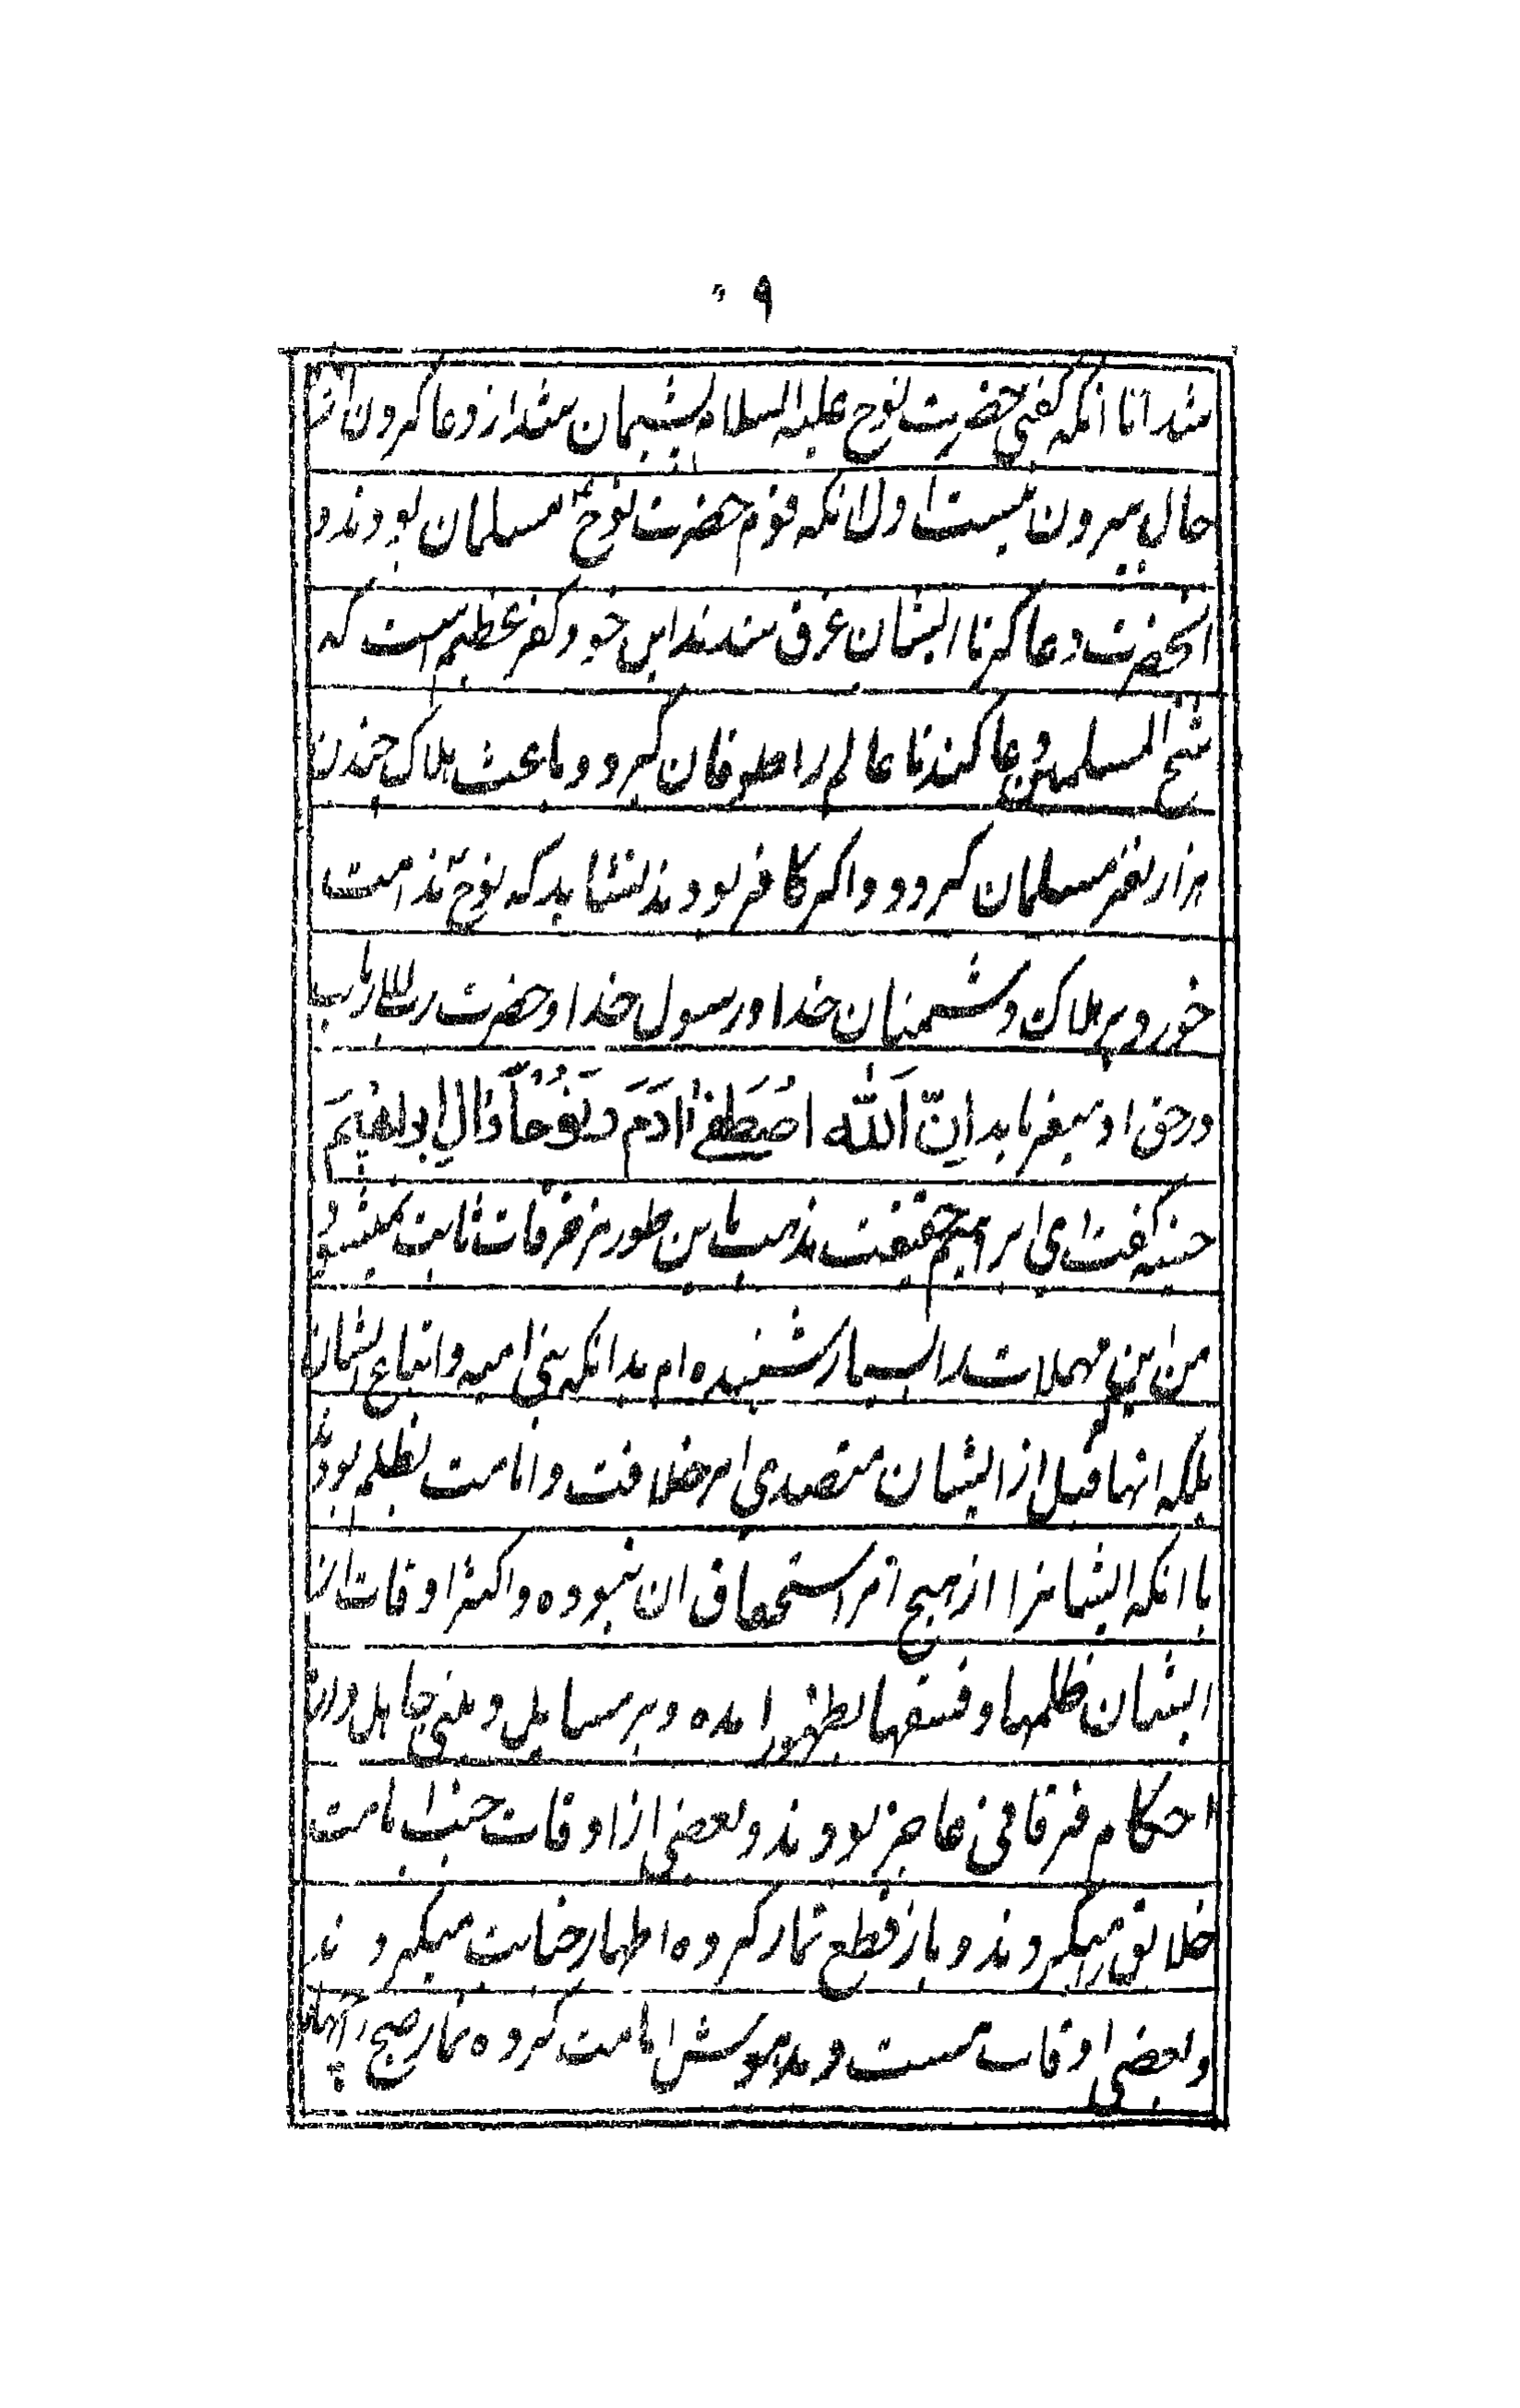 ۹
شد اما انکه کفتی حضرت نوح علیه السلام پشیمان شد از دعا کردن از
حال بیرون نیست اول انکه قوم حضرت نوح ع مسلمان بودند و
انحضرت دعا کرد تا ایشان غرق شدند این خود کفر عظیم است که
شیخ المسلمین دعا کند تا عالم را طوفان کیرد و باعث هلاک چندن
هزار نفر مسلمان کردد و اکر کافر بودند نشاید که نوح ع ندامت
خورد بر هلاک دشمنان خدا و رسول خدا و حضرت رب الارباب
در حق او میفرماید اِنَّ اَللّه اصْطَفیٰ ادَمَ وَ نُوْحاً وَّالِ ابراهِیْمَ
حسنیه کفت ای ابراهیم حقیقت مذهب باین طور مزخرفات ثابت نمیشود
من این مهملات را بسیار شنیده ام بدانکه بنی امیه و اتباع ایشان
بلکه انها که قبل از ایشان متصدی امر خلافت و امامت بظلم بودند
با انکه ایشانرا از هیچ امر استحقاق ان نبوده و اکثر اوقات از
ایشان ظلمها و فسقها بظهور امده و بر مسایل دینی جاهل و از
احکام فرقانی عاجز بودند و بعضی از اوقات جنب امامت
خلایق میکردند و باز قطع نماز کرده اظهار جنابت میکردند
و بعضی اوقات مست و مدهوش امامت کرده نماز صبح را چهار